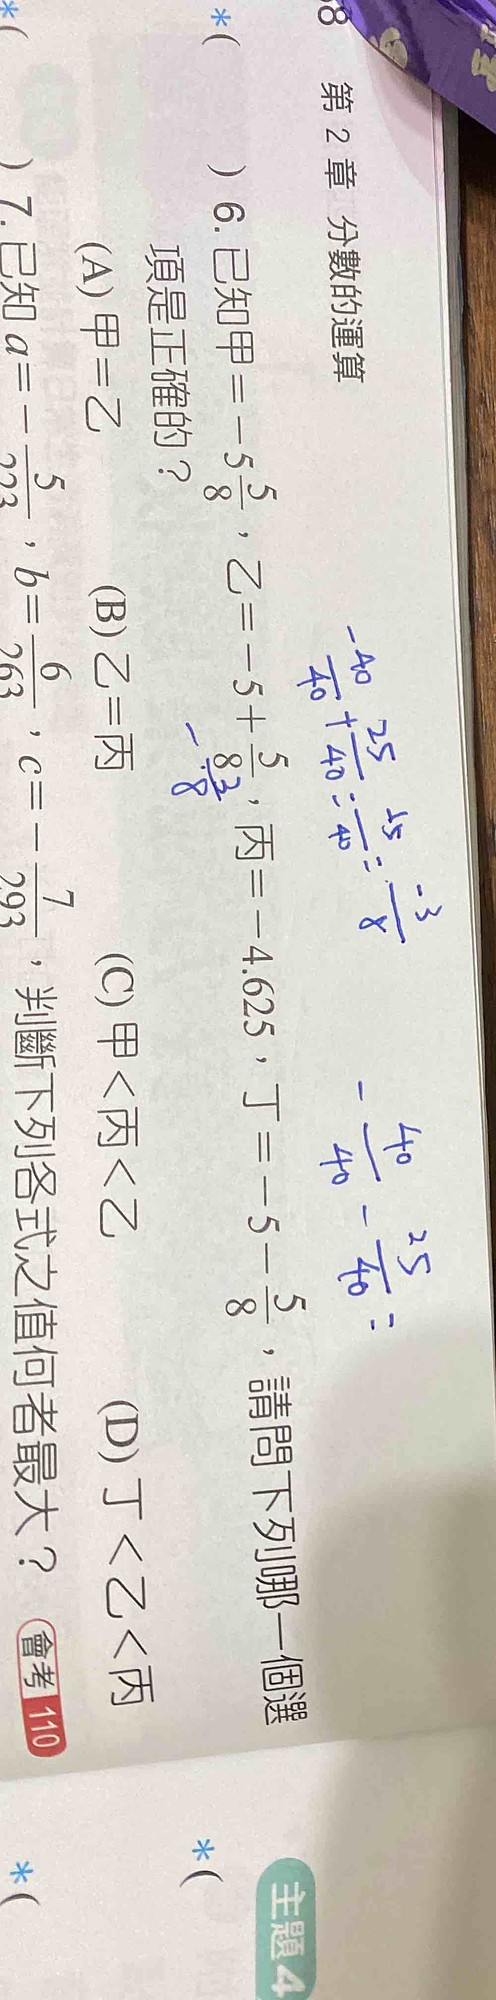 第 2 章 分數的運算
-40/40 + 25/40 = 15/40 = -3/8
- 40/40 - 25/40 =
*( ) 6. 已知甲＝－5 5/8，乙＝－5＋5/8，丙＝－4.625，丁＝－5－5/8，請問下列哪一個選
項是正確的？
- 3/8
(A) 甲＝乙 (B) 乙＝丙 (C) 甲＜丙＜乙 (D) 丁＜乙＜丙
*( ) 7. 已知 a＝－5/223，b＝6/263，c＝－7/293，判斷下列各式之值何者最大？ 會考 110
主題 4
*(
*(